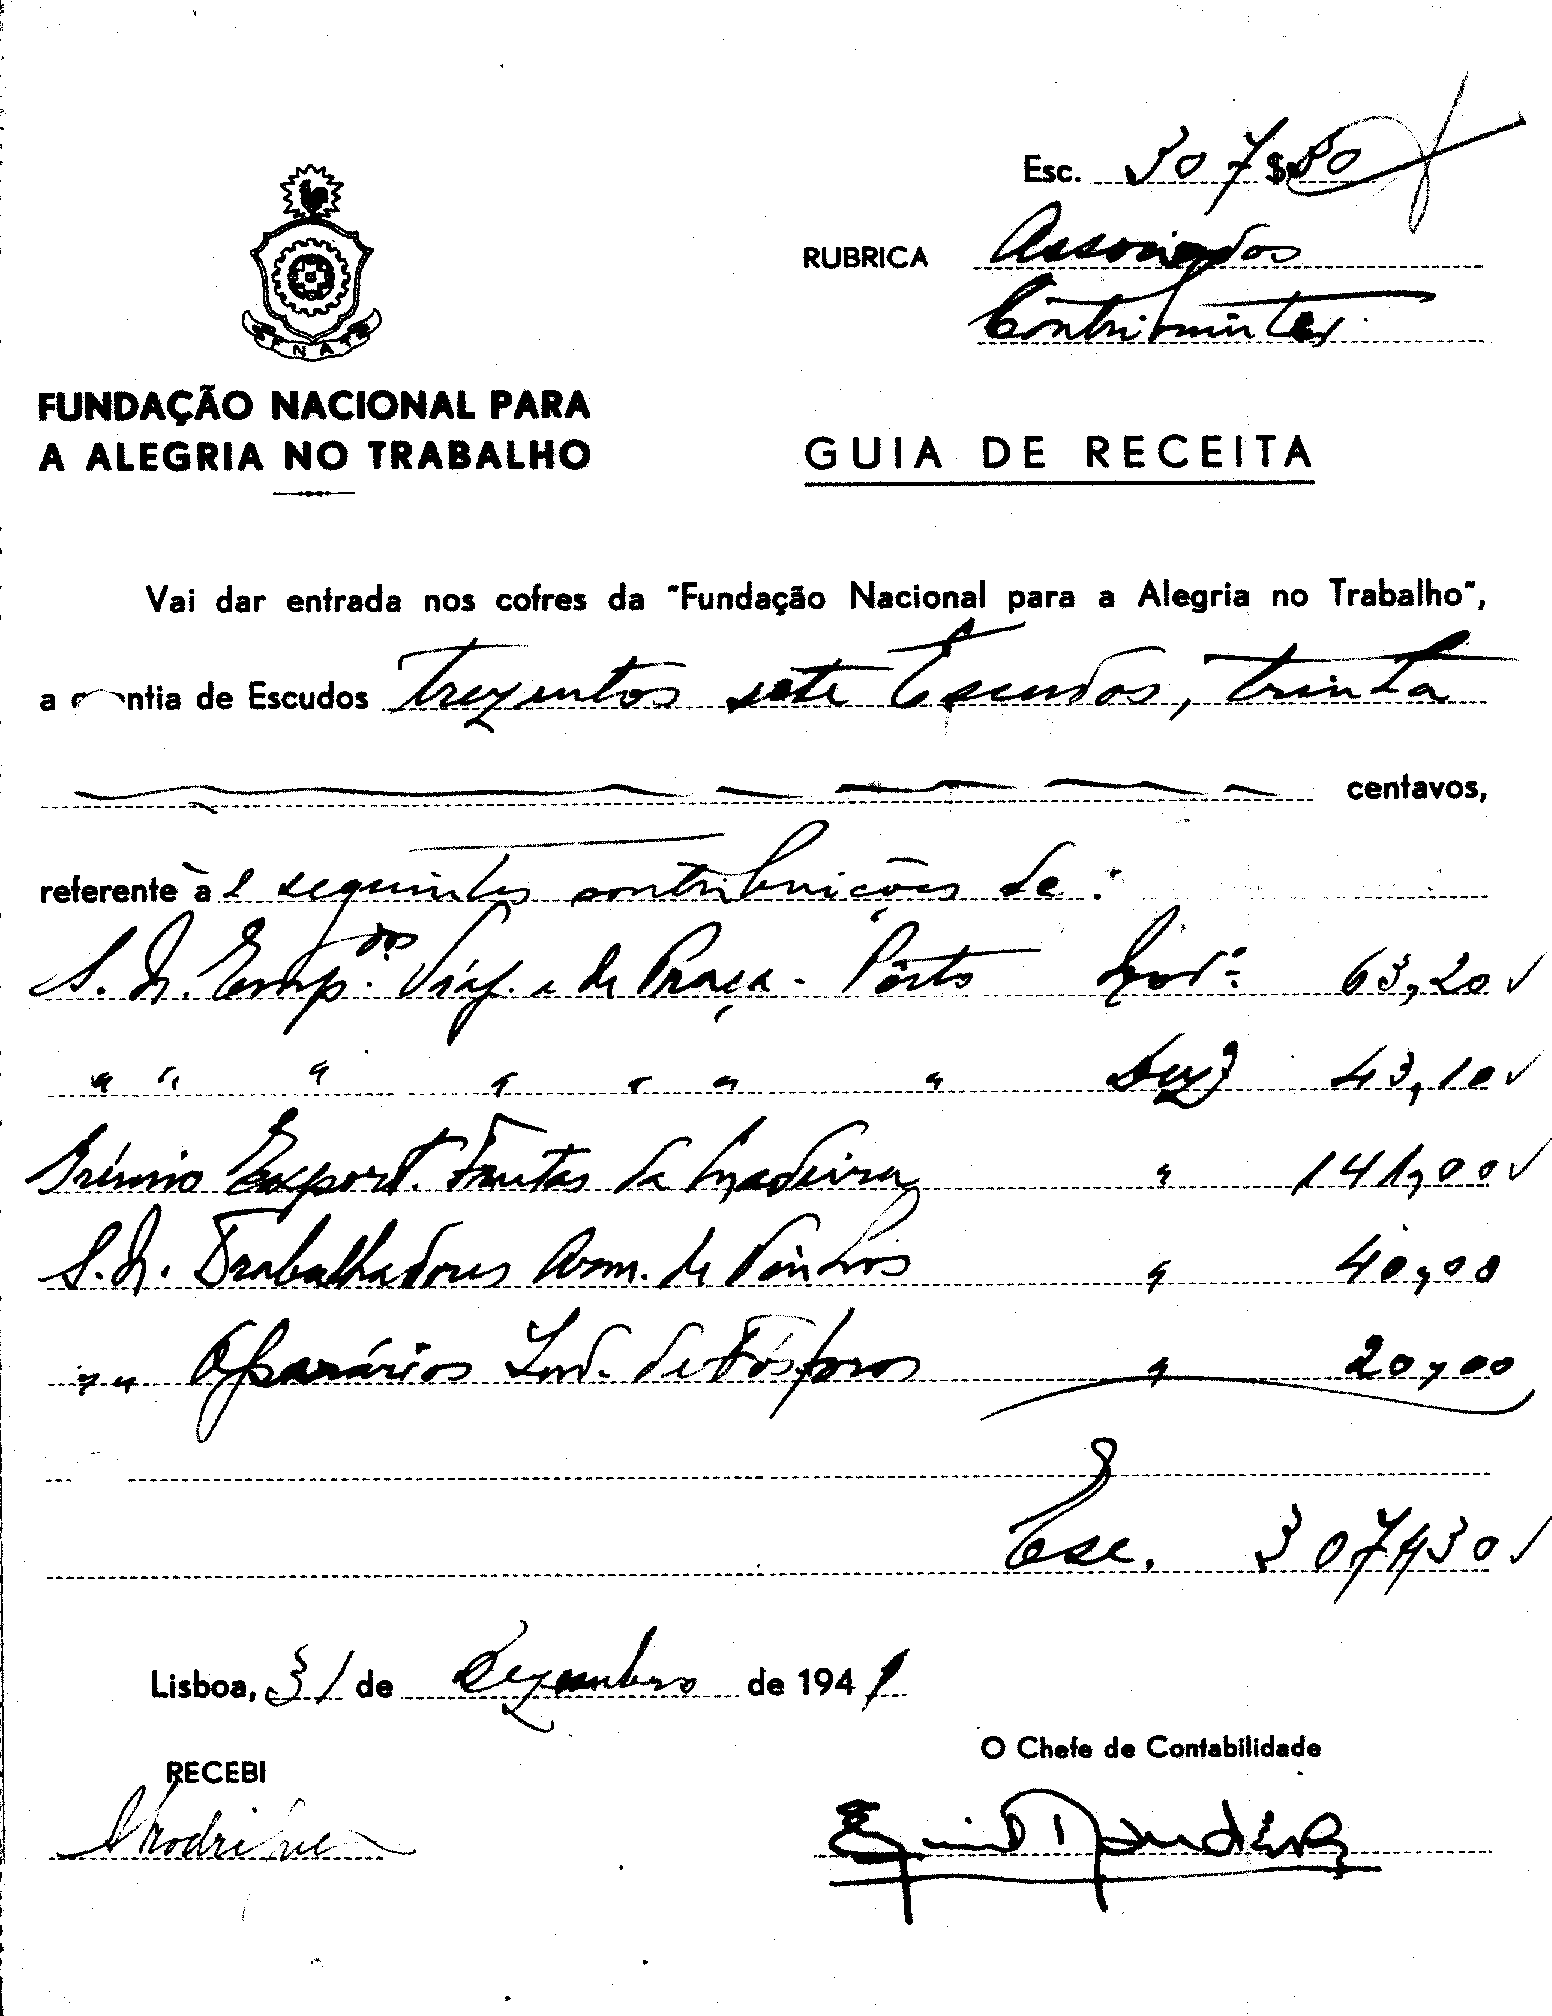 Esc. 307$30
RUBRICA Associados
Contribuintes
FNAT
FUNDAÇÃO NACIONAL PARA
A ALEGRIA NO TRABALHO
GUIA DE RECEITA
Vai dar entrada nos cofres da "Fundação Nacional para a Alegria no Trabalho",
a quantia de Escudos Trezentos sete Escudos, trinta
centavos,
referente às seguintes contribuições de:
S. N. Emp.dos Viaj. e de Praça - Pôrto Nov.º 63,20
" " " " " " " Dezº 43,10
Grémio Export. Frutas da Madeira " 141,00
S. N. Trabalhadores Arm. de Vinhos " 40,00
" " Operários Ind. de Fósforos " 20,00
Esc. 307$30
Lisboa, 31 de Dezembro de 1941
O Chefe de Contabilidade
RECEBI